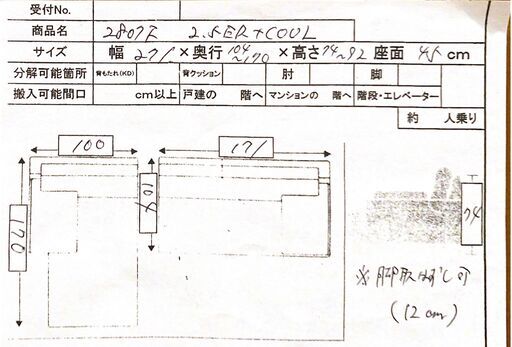 受付No.
商品名 2807E 2.5ER+COUL
サイズ 幅 271 ×奥行 104～170 ×高さ 74～82 座面 45 cm
分解可能箇所 背もたれ(KD) 背クッション 肘 脚
搬入可能間口 cm以上 戸建の 階へ マンションの 階へ 階段・エレベーター
約 人乗り
100 171
104
170
74
※ 脚取はずし可
(12cm)